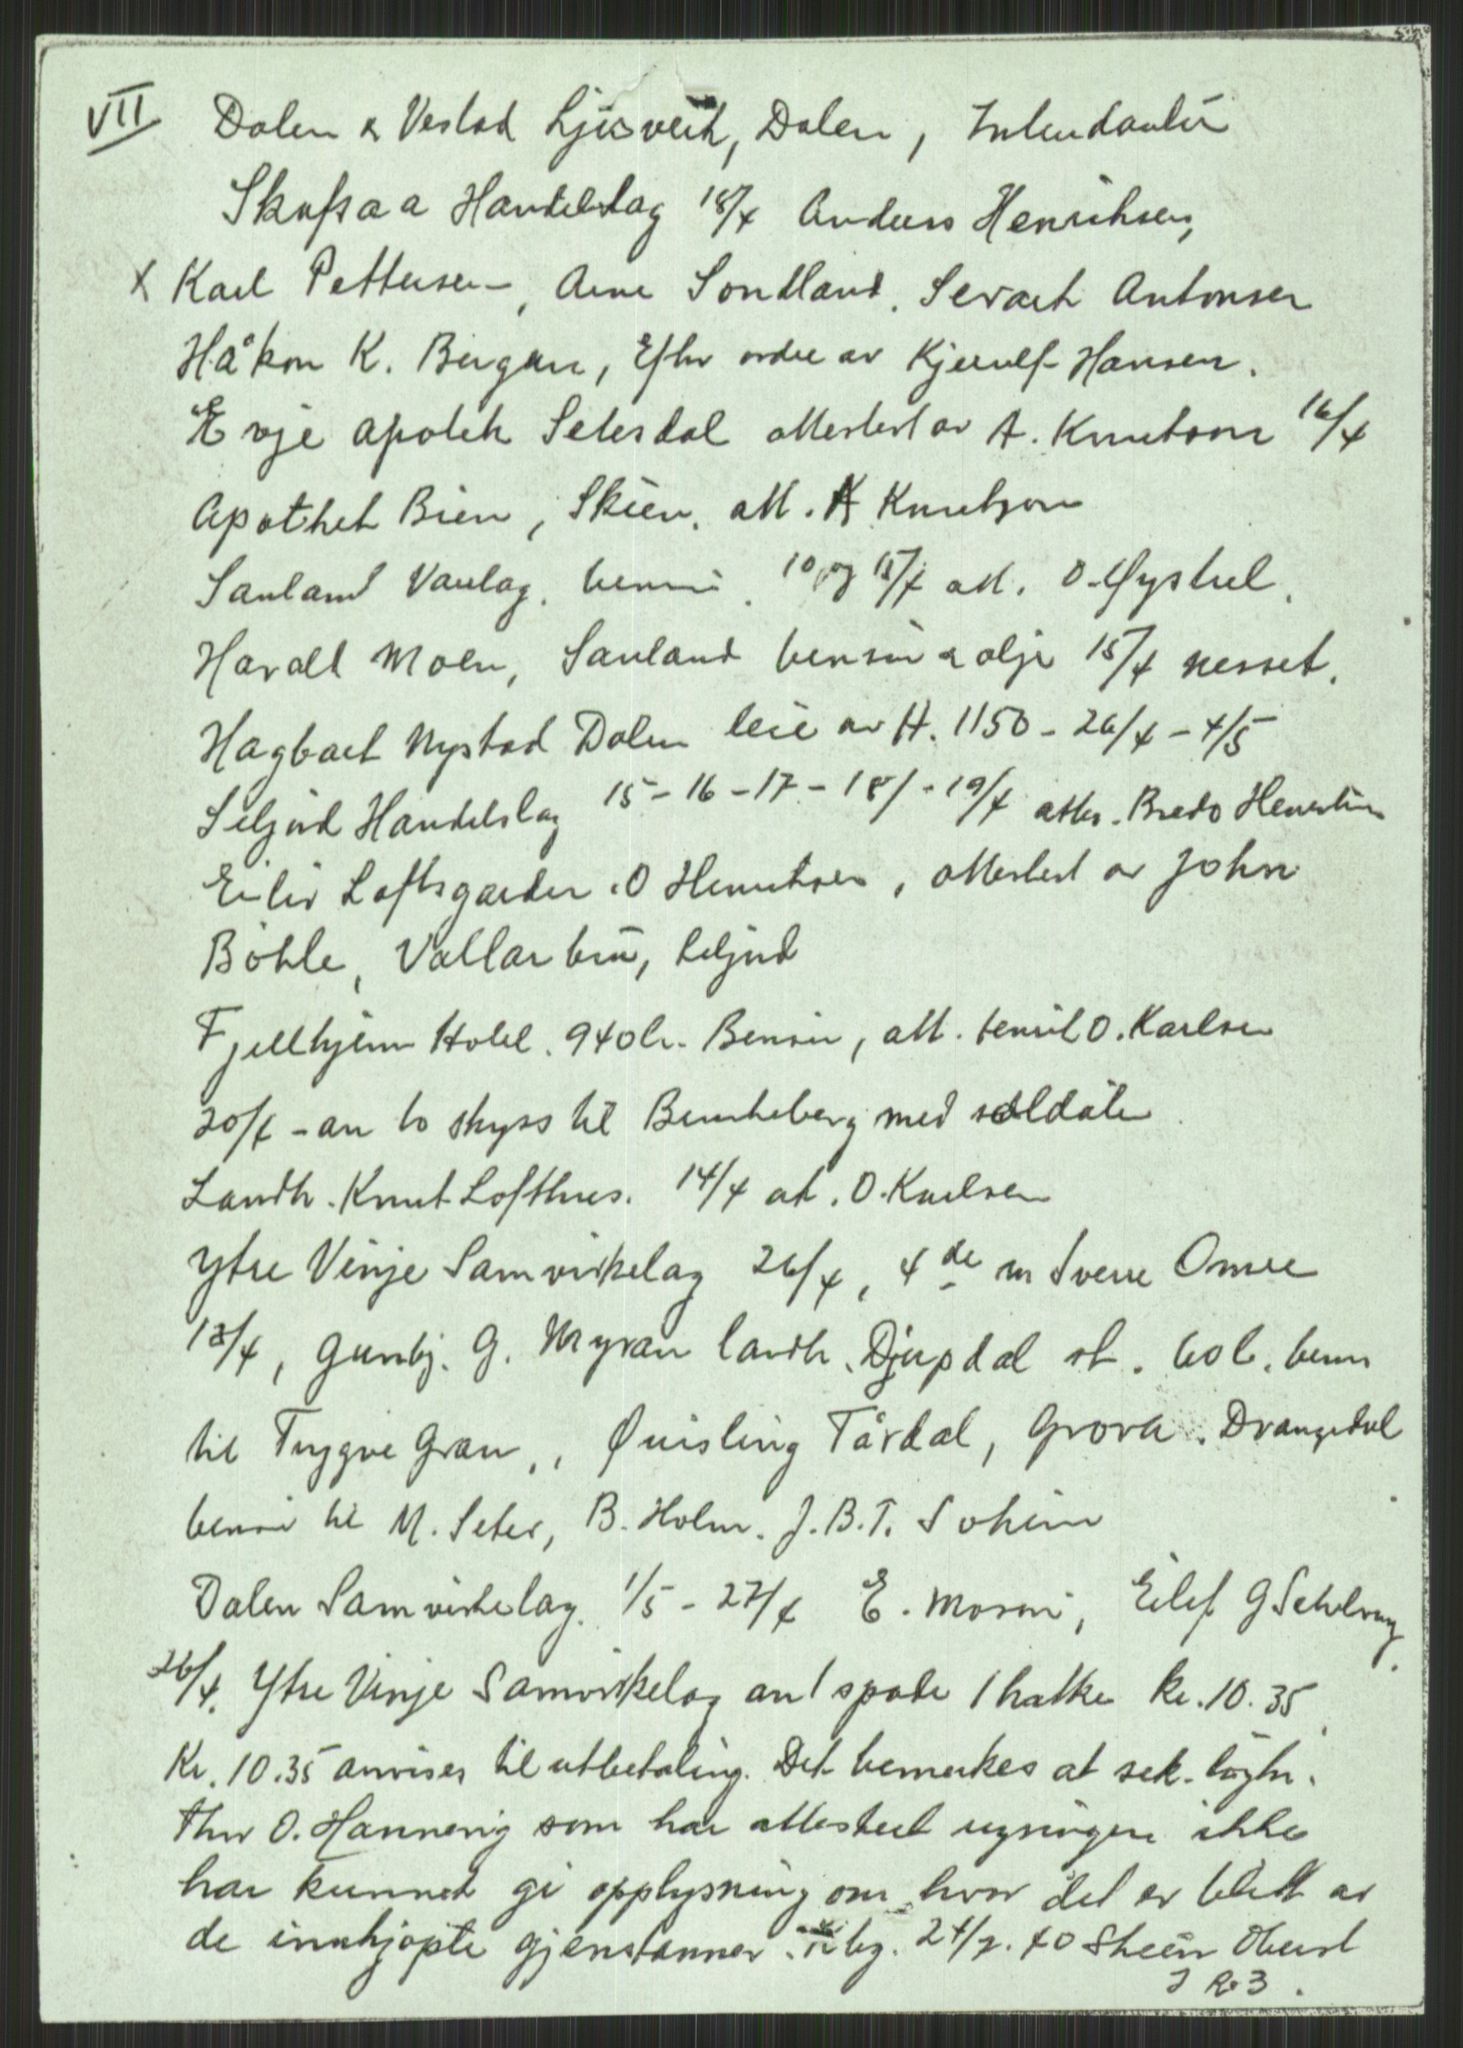 VII Dalen & Vestad Ljosverk, Dalen, Intendantur
Skafsaa Handelslag 18/4 Anders Henriksen,
x Karl Pettersen, Arne Sondland. Antonsen
Håkon K. Bergan, Efter ordre av Kjerulf-Hansen.
Evje apotek Setesdal attestert av A. Knutson 16/4
Apothek Bien, Skien. att. A Knutson
Sauland Varelag. bensin. 10 og 15/4 att. O. Øystul.
Harald Moen, Sauland bensin & olje 15/4 Nesset.
Hagbart Nystad Dalen leie av H. 1150 - 26/4 - 4/5
Seljord Handelslag 15 - 16 - 17 - 18/ - 19/4 attes. Bredo
Eiliv Loftsgarden. O attestert av John
Böhle, Vallar bru, Seljord
Fjellhjem Hotel. 940 l. Bensin, att. O. Karlsen
20/4 - an to skyss til Brunkeberg med soldater
Landh. Knut Lofthus. 14/4 at. O. Karlsen
Ytre Vinje Samvirkelag 26/4, 4de m Sverre Omre
18/4, Gunbj. G. Myran landh. Djupdal st. 60 l. bensin
til Trygve Gran,, Quisling Tårdal, Grova. Drangedal
bensin til M. Seter, B. Holm. J.B.T.
Dalen Samvirkelag. 1/5 - 27/4 E. Moseni, Eilef G
26/4. Ytre Vinje Samvirkelag an 1 spade 1 hakke kr. 10.35
Kr. 10.35 anvises til utbetaling. Det bemerkes at sek. løytn.
Thor O. Hannevig som har attestert regningen ikke
har kunnet gi opplysning om hvor det er blitt av
de innkjøpte gjenstanner. 24/7. 40 Steen Oberst
I R 3.